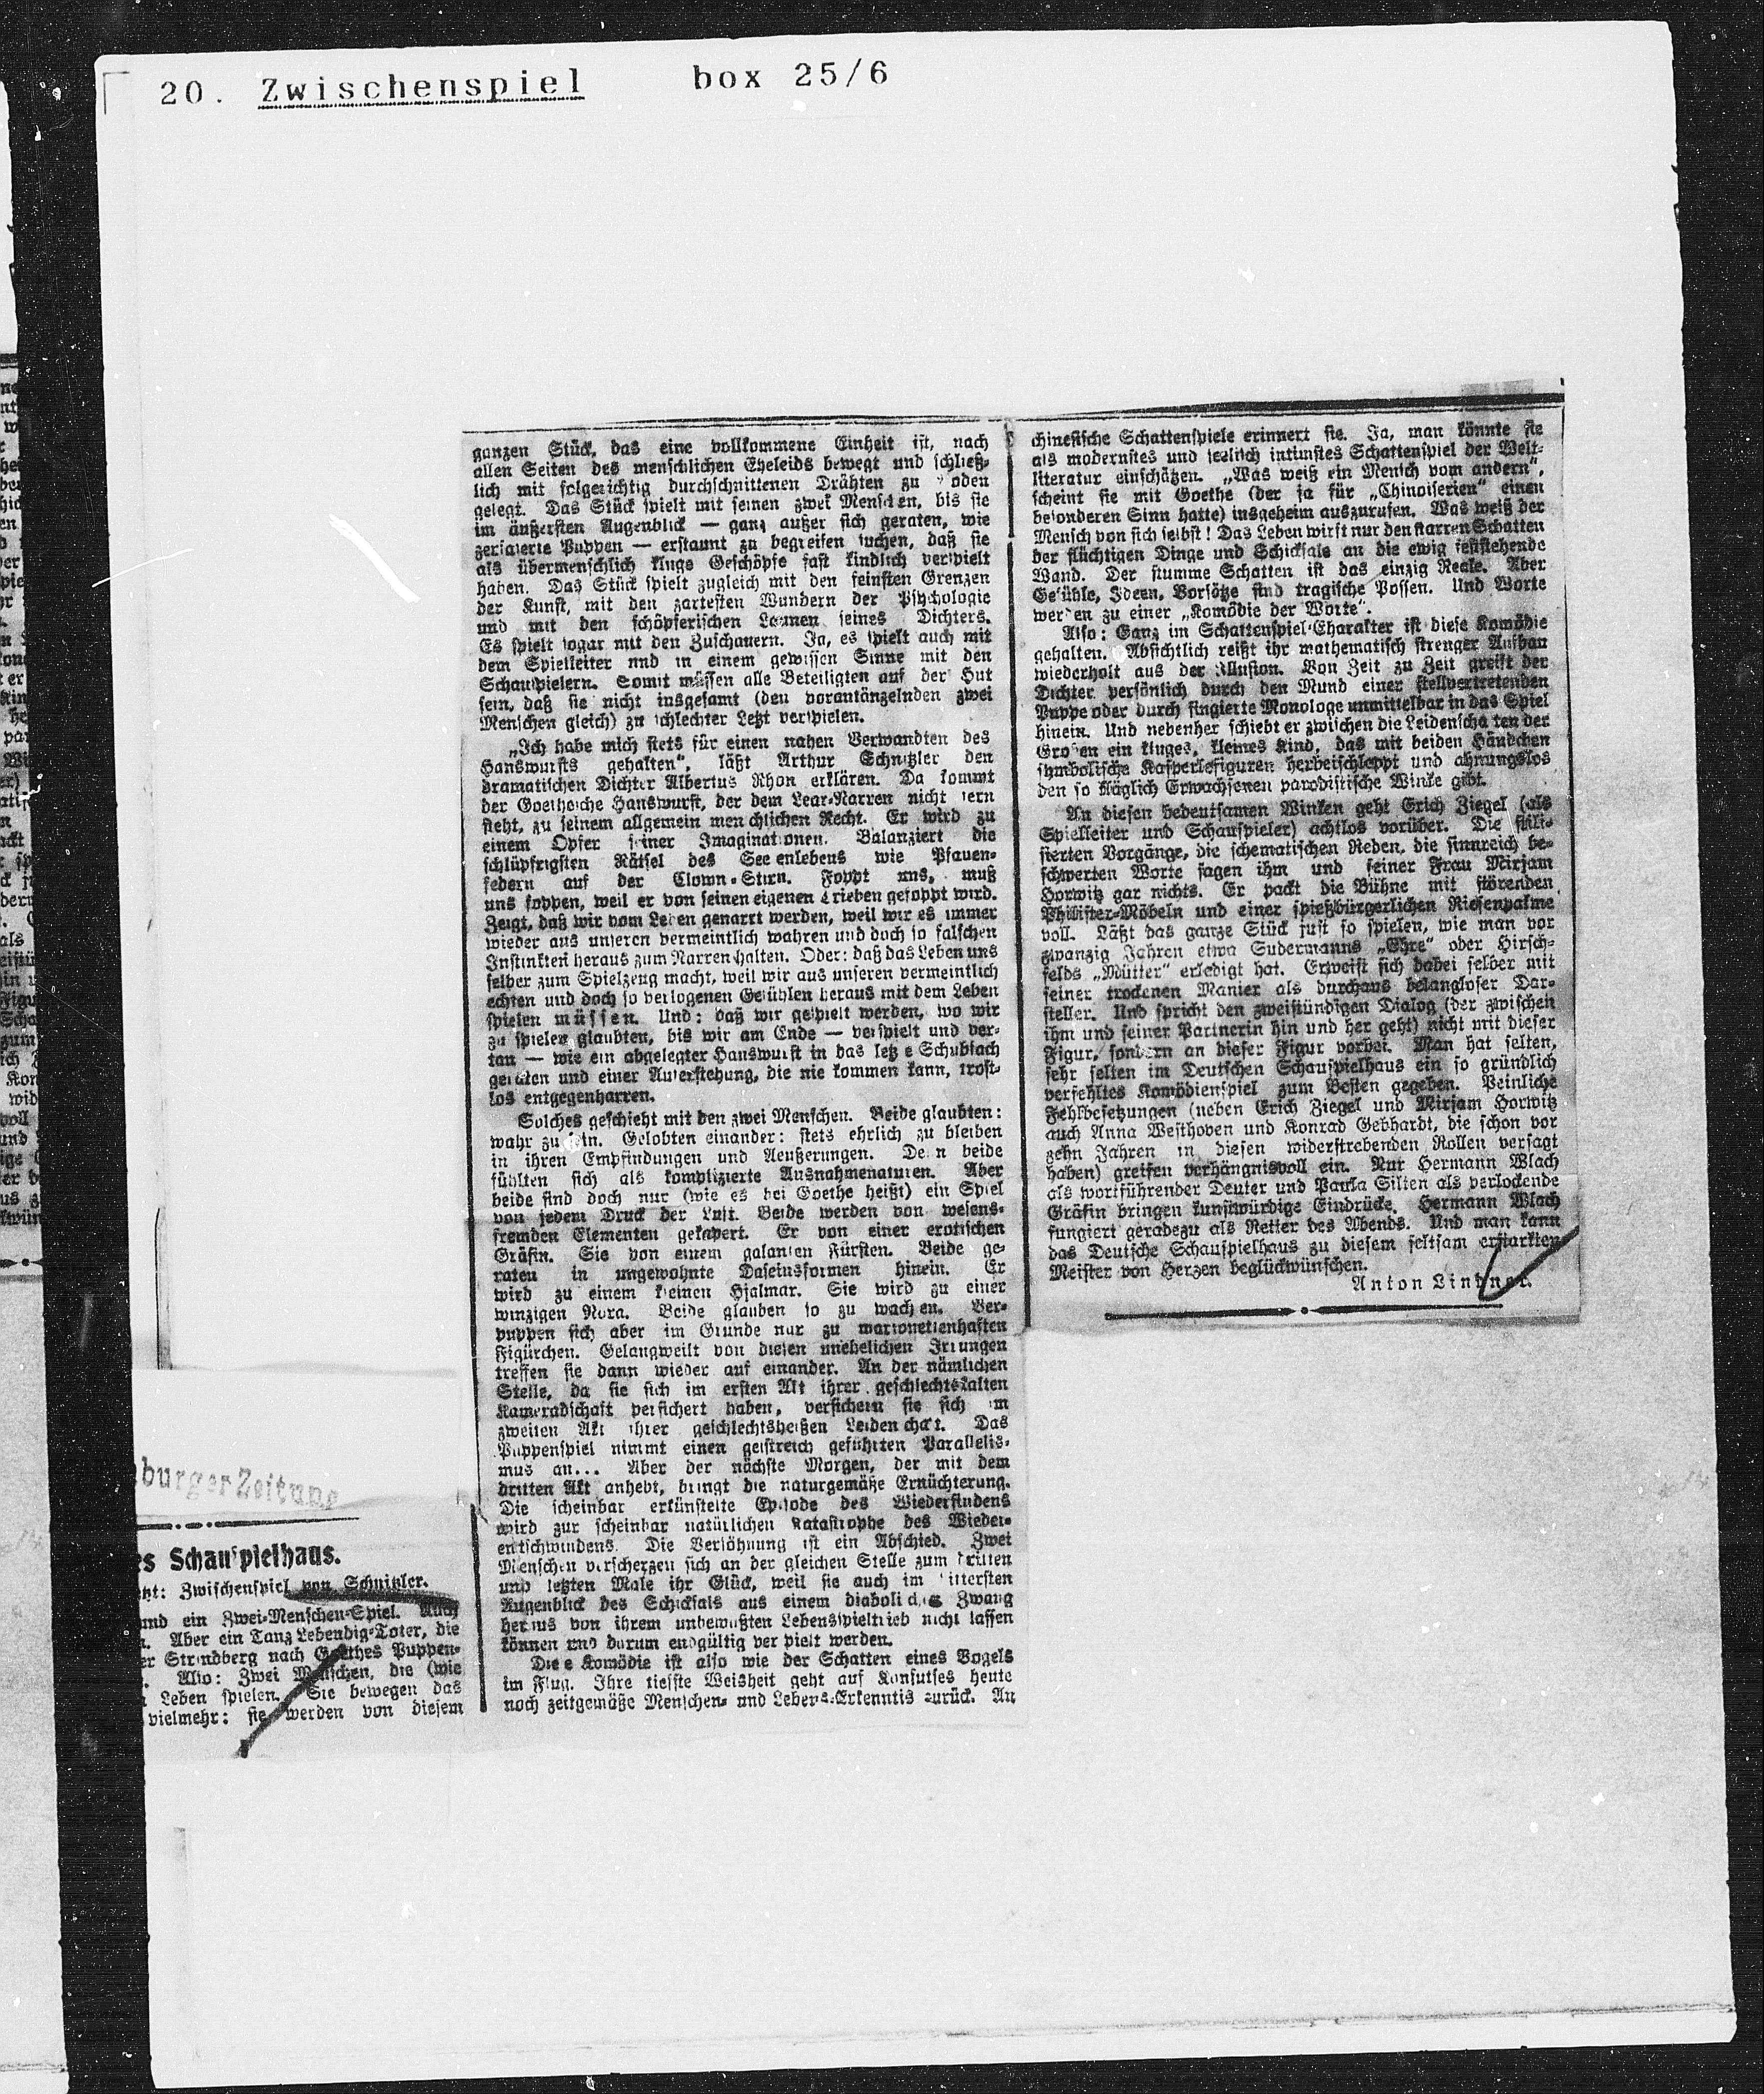 20. Zwischenspiel box 25/6
burger Zeitung
es Schauspielhaus.
tzt: Zwischenspiel von Schnitzler.
und ein Zwei-Menschen-Spiel. Auch
n. Aber ein Tanz Lebendig-Toter, die
er Strindberg nach Goethes Puppen-
. Also: Zwei Menschen, die (wie
n Leben spielen. Sie bewegen das
vielmehr: sie werden von diesem
ganzen Stück, das eine vollkommene Einheit ist, nach
allen Seiten des menschlichen Eheleids bewegt und schließ-
lich mit folgerichtig durchschnittenen Drähten zu Boden
gelegt. Das Stück spielt mit seinen zwei Menschen, bis sie
im äußersten Augenblick — ganz außer sich geraten, wie
zerfaserte Puppen — erstaunt zu begreifen suchen, daß sie
als übermenschlich kluge Geschöpfe fast kindlich verspielt
haben. Das Stück spielt zugleich mit den feinsten Grenzen
der Kunst, mit den zartesten Wundern der Psychologie
und mit den schöpferischen Launen seines Dichters.
Es spielt sogar mit den Zuschauern. Ja, es spielt auch mit
dem Spielleiter nnd in einem gewissen Sinne mit den
Schauspielern. Somit müssen alle Beteiligten auf der Hut
sein, daß sie nicht insgesamt (den vorantänzelnden zwei
Menschen gleich) zu schlechter Letzt verspielen.
„Ich habe mich stets für einen nahen Verwandten des
Hanswursts gehalten", läßt Arthur Schnitzler den
dramatischen Dichter Albertus Rhon erklären. Da kommt
der Goethesche Hanswurst, der dem Lear-Narren nicht fern
steht, zu seinem allgemein menschlichen Recht. Er wird zu
einem Opfer seiner Imaginationen. Balanziert die
schlüpfrigsten Rätsel des Seelenlebens wie Pfauen-
federn auf der Clown-Stirn. Foppt uns, muß
uns foppen, weil er von seinen eigenen Trieben gefoppt wird.
Zeigt, daß wir vom Leben genarrt werden, weil wir es immer
wieder aus unseren vermeintlich wahren und doch so falschen
Instinkten heraus zum Narren halten. Oder: daß das Leben uns
selber zum Spielzeug macht, weil wir aus unseren vermeintlich
echten und doch so verlogenen Gefühlen heraus mit dem Leben
spielen müssen. Und: daß wir gespielt werden, wo wir
zu spielen glaubten, bis wir am Ende — verspielt und ver-
tan — wie ein abgelegter Hanswurst in das letzte Schubfach
geraten und einer Auferstehung, die nie kommen kann, trost-
los entgegenharren.
Solches geschieht mit den zwei Menschen. Beide glaubten:
wahr zu sein. Gelobten einander: stets ehrlich zu bleiben
in ihren Empfindungen und Aeußerungen. Denn beide
fühlten sich als komplizierte Ausnahmenaturen. Aber
beide sind doch nur (wie es bei Goethe heißt) ein Spiel
von jedem Druck der Luft. Beide werden von wesens-
fremden Elementen gekapert. Er von einer erotischen
Gräfin. Sie von einem galanten Fürsten. Beide ge-
raten in ungewohnte Daseinsformen hinein. Er
wird zu einem kleinen Hjalmar. Sie wird zu einer
winzigen Nora. Beide glauben so zu wachsen. Ver-
puppen sich aber im Grunde nur zu marionettenhaften
Figürchen. Gelangweilt von diesen unehelichen Irrungen
treffen sie dann wieder auf einander. An der nämlichen
Stelle, da sie sich im ersten Akt ihrer geschlechtskalten
Kameradschaft versichert haben, versichern sie sich im
zweiten Akt ihrer geschlechtsheißen Leidenschaft. Das
Puppenspiel nimmt einen geistreich geführten Parallelis-
mus an... Aber der nächste Morgen, der mit dem
dritten Akt anhebt, bringt die naturgemäße Ernüchterung.
Die scheinbar erkünstelte Episode des Wiederfindens
wird zur scheinbar natürlichen Katastrophe des Wieder-
entschwindens. Die Versöhnung ist ein Abschied. Zwei
Menschen verscherzen sich an der gleichen Stelle zum dritten
und letzten Male ihr Glück, weil sie auch im bittersten
Augenblick des Schicksals aus einem diabolischen Zwang
heraus von ihrem unbewußten Lebensspieltrieb nicht lassen
können und darum endgültig verspielt werden.
Diese Komödie ist also wie der Schatten eines Vogels
im Flug. Ihre tiefste Weisheit geht auf Konfutses heute
noch zeitgemäße Menschen- und Lebens-Erkenntis zurück. An
chinesische Schattenspiele erinnert sie. Ja, man könnte sie
als modernstes und seelisch intimstes Schattenspiel der Welt-
literatur einschätzen. „Was weiß ein Mensch vom andern",
scheint sie mit Goethe (der ja für „Chinoiserien" einen
besonderen Sinn hatte) insgeheim auszurufen. Was weiß der
Mensch von sich selbst! Das Leben wirft nur den starren Schatten
der flüchtigen Dinge und Schicksale an die ewig feststehende
Wand. Der stumme Schatten ist das einzig Reale. Aber
Gefühle, Ideen, Vorsätze sind tragische Possen. Und Worte
werden zu einer „Komödie der Worte".
Also: Ganz im Schattenspiel-Charakter ist diese Komödie
gehalten. Absichtlich reißt ihr mathematisch strenger Aufbau
wiederholt aus der Illusion. Von Zeit zu Zeit greift der
Dichter persönlich durch den Mund einer stellvertretenden
Puppe oder durch fingierte Monologe unmittelbar in das Spiel
hinein. Und nebenher schiebt er zwischen die Leidenschaften der
Großen ein kluges, kleines Kind, das mit beiden Händchen
symbolische Kasperlefiguren herbeischleppt und ahnungslos
den so kläglich Erwachsenen parodistische Winke gibt.
An diesen bedeutsamen Winken geht Erich Ziegel (als
Spielleiter und Schauspieler) achtlos vorüber. Die stili-
sierten Vorgänge, die schematischen Reden, die sinnreich be-
schwerten Worte sagen ihm und seiner Frau Mirjam
Horwitz gar nichts. Er packt die Bühne mit störenden
Philister-Möbeln und einer spießbürgerlichen Riesenpalme
voll. Läßt das ganze Stück just so spielen, wie man vor
zwanzig Jahren etwa Sudermanns „Ehre" oder Hirsch-
felds „Mütter" erledigt hat. Erweist sich dabei selber mit
seiner trockenen Manier als durchaus belangloser Dar-
steller. Und spricht den zweistündigen Dialog (der zwischen
ihm und seiner Partnerin hin und her geht) nicht mit dieser
Figur, sondern an dieser Figur vorbei. Man hat selten,
sehr selten im Deutschen Schauspielhaus ein so gründlich
verfehltes Komödienspiel zum Besten gegeben. Peinliche
Fehlbesetzungen (neben Erich Ziegel und Mirjam Horwitz
auch Anna Westhoven und Konrad Gebhardt, die schon vor
zehn Jahren in diesen widerstrebenden Rollen versagt
haben) greifen verhängnisvoll ein. Nur Hermann Wlach
als wortführender Deuter und Paula Silten als verlockende
Gräfin bringen kunstwürdige Eindrücke. Hermann Wlach
fungiert geradezu als Retter des Abends. Und man kann
das Deutsche Schauspielhaus zu diesem seltsam erstarkten
Meister von Herzen beglückwünschen.
Anton Lindner.